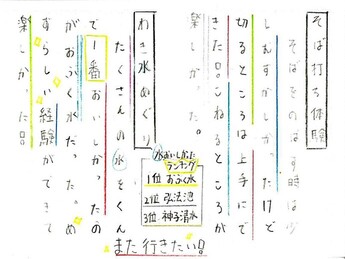 そば打ち体験
そばをのばす時は少
しむずかしかったけど
切るところは上手にで
きた!!こねるところが
楽しかった。
わき水めぐり
たくさんの水をくん
で1番おいしかったの
がおぶく水だった。め
ずらしい経験ができて
楽しかった!!
水おいしかった
ランキング
1位 おぶく水
2位 弘法池
3位 神子清水
また行きたい!!